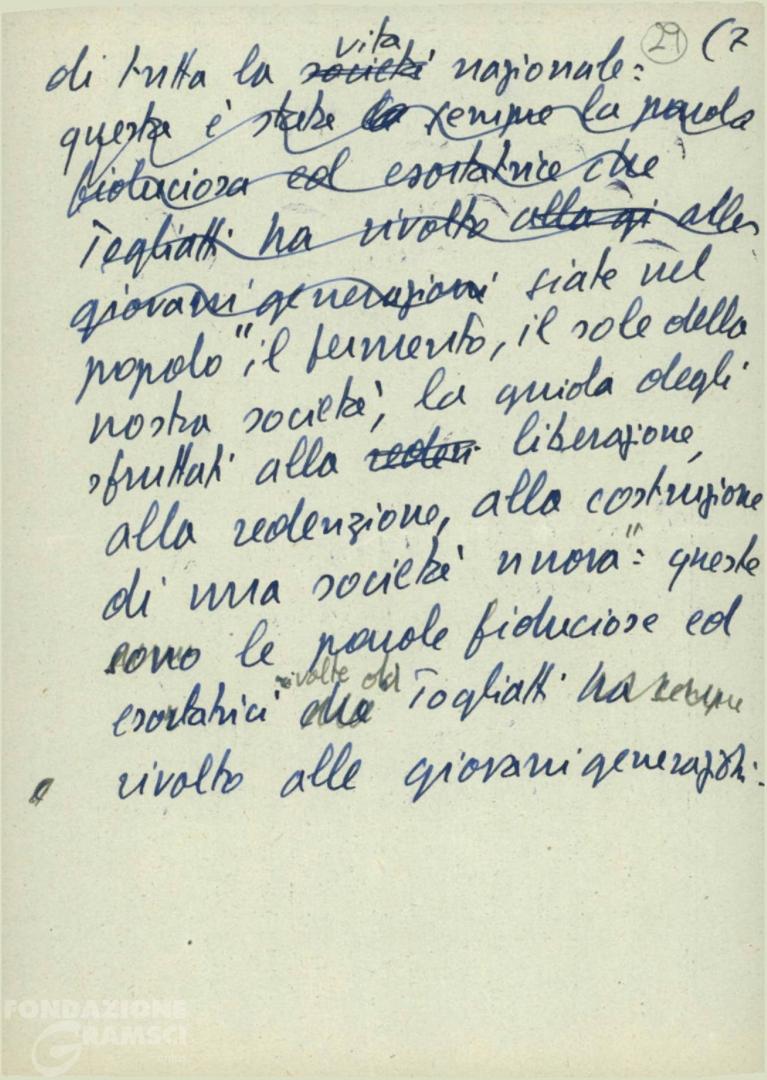 29 (7
vita
di tutta la società nazionale:
questa è stata la sempre la parola
fiduciosa ed esortatrice che
Togliatti ha rivolto alla gi alle
giovani generazioni siate nel
popolo "il fermento, il sole della
nostra società, la guida degli
sfruttati alla reden liberazione,
alla redenzione, alla costruzione
di una società nuova": queste
sono le parole fiduciose ed
rivolte
esortatrici che Togliatti ha sempre
rivolto alle giovani generazioni.
FONDAZIONE
GRAMSCI